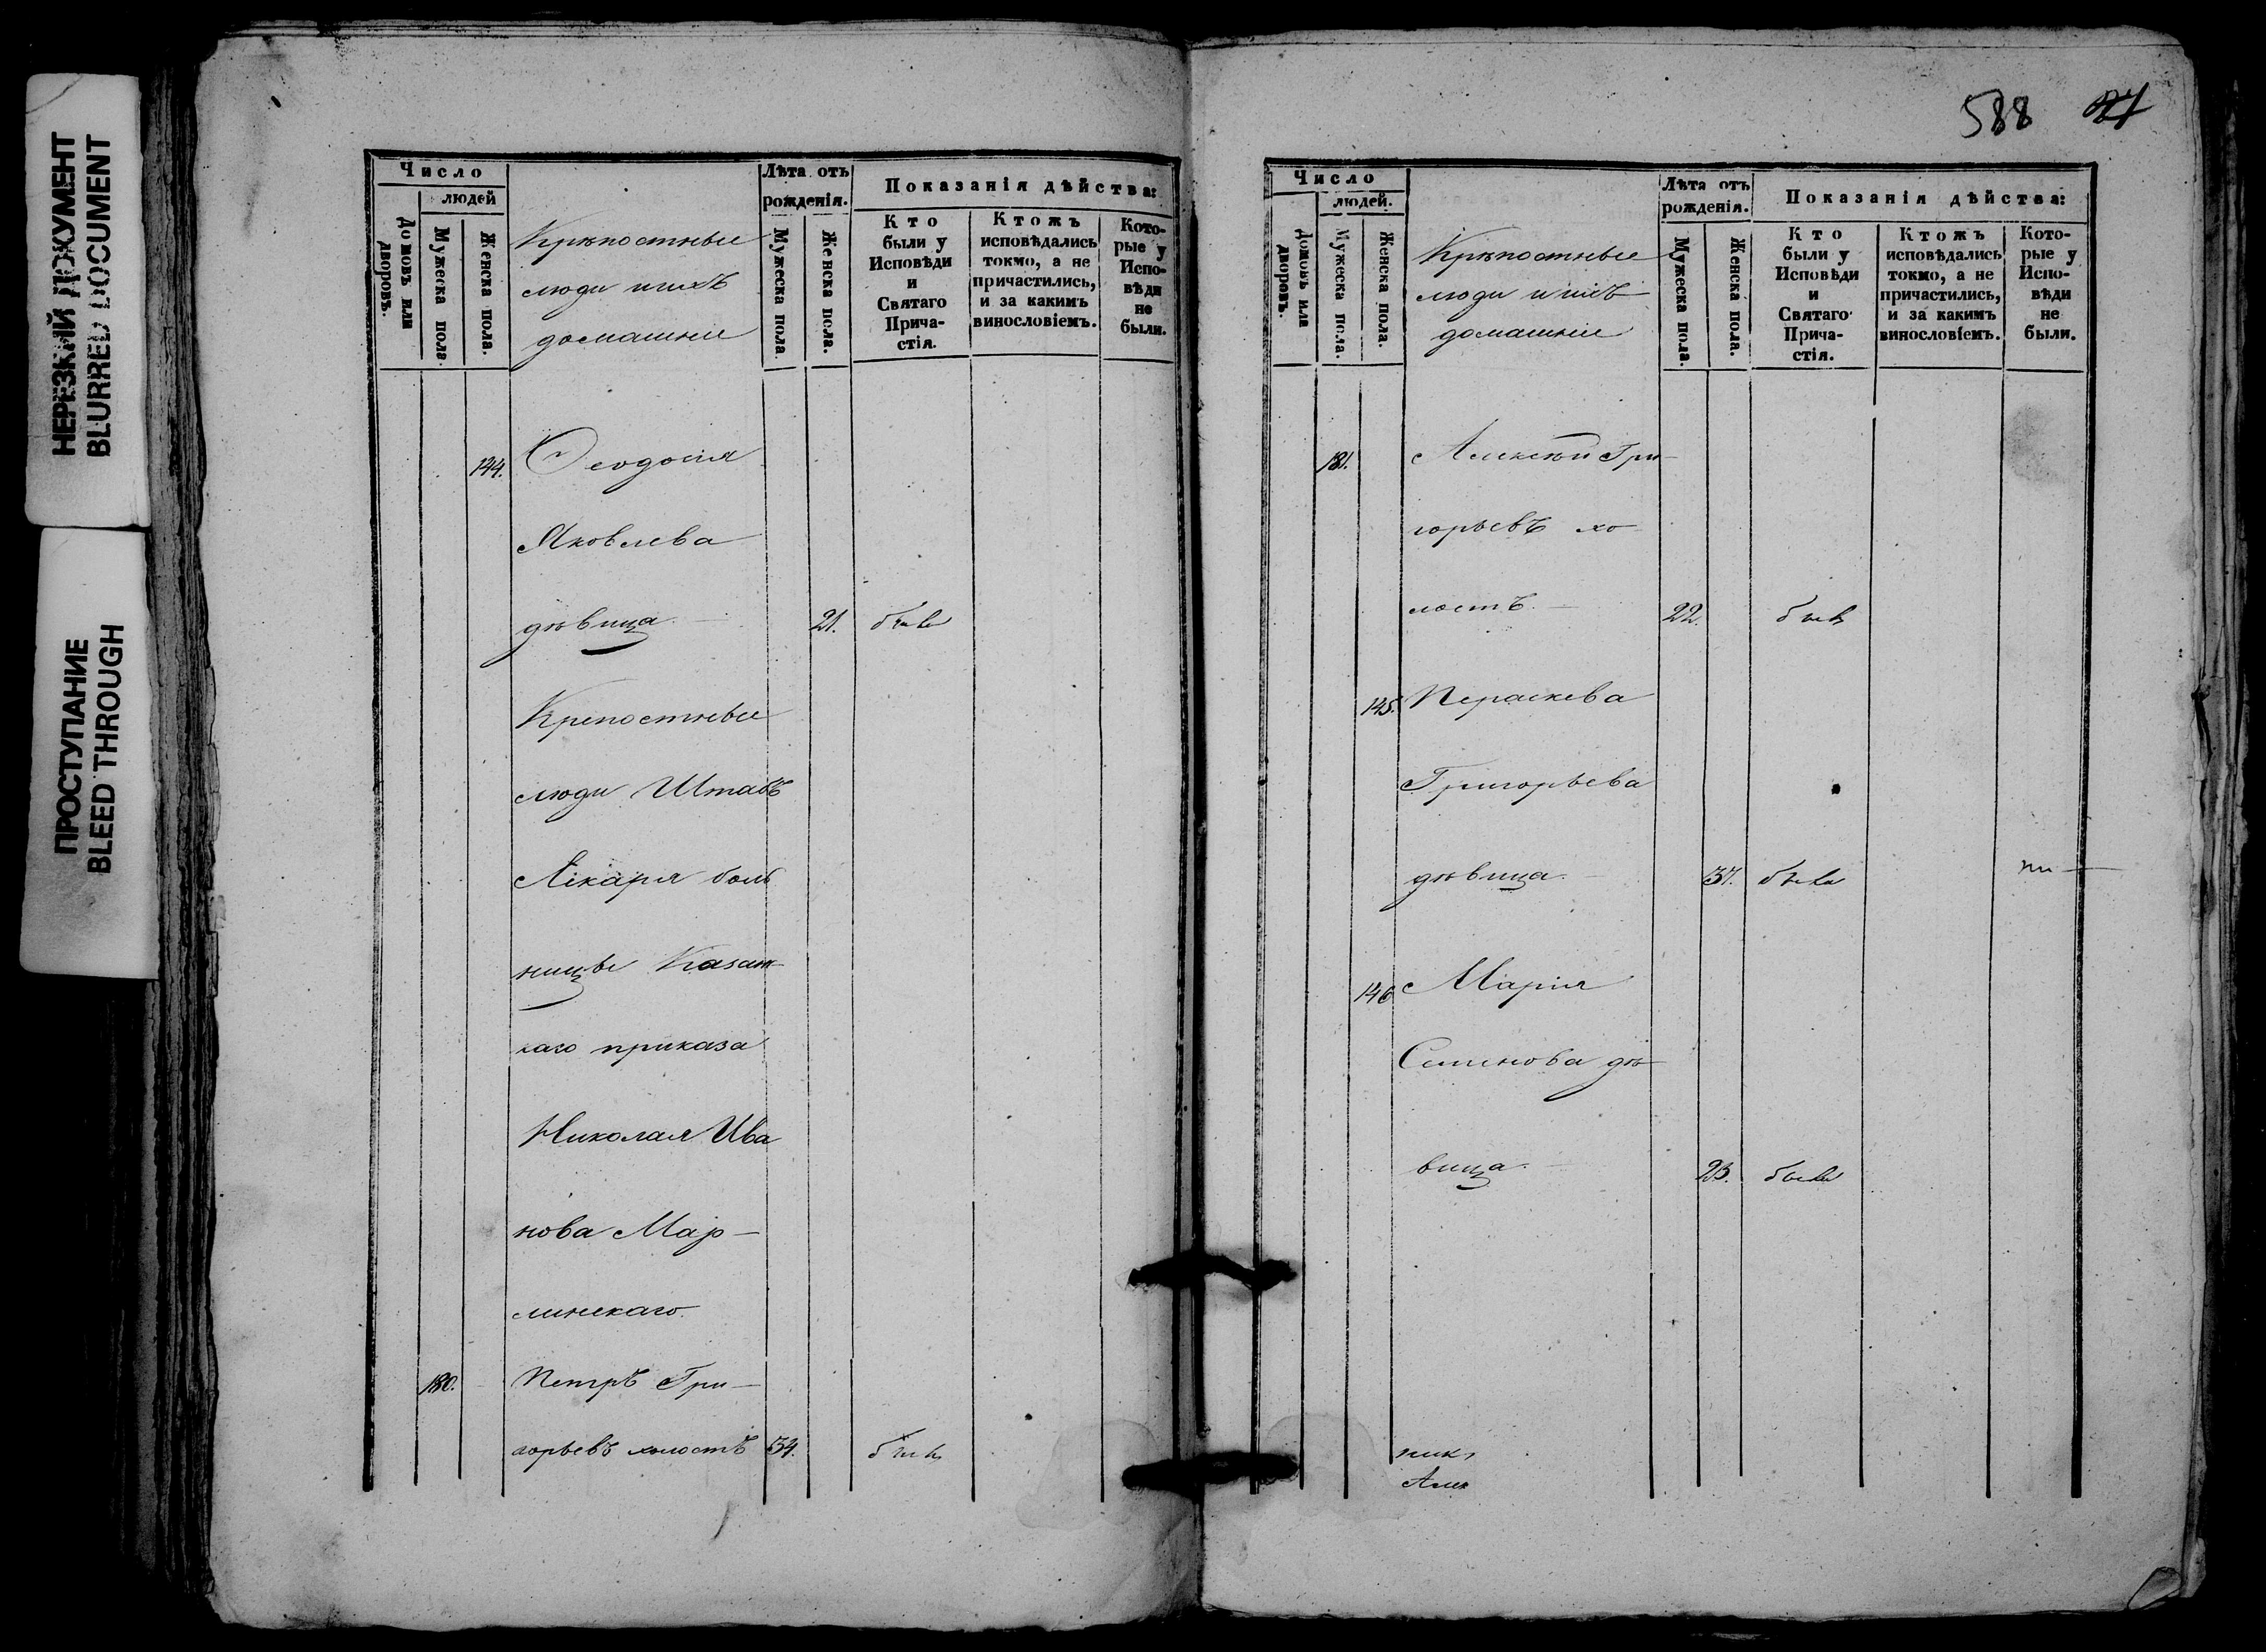 НЕРЕЗКИЙ ДОКУМЕНТ
BLURRED DOCUMENT
ПРОСТУПАНИЕ
BLEED THROUGH
Число
людей
Домовъ или дворовъ.
Мужеска пола
Женска пола.
Крѣпостные
люди и ихъ
домашніе
Лѣта отъ рожденія.
Мужеска пола
Женска пола.
Показанія дѣйства:
Кто были у Исповѣди и Святаго Прича-стія.
Ктожъ исповѣдались токмо, а не причастились, и за какимъ винословіемъ.
Кото-рые у Испо-вѣди не были.
144. Ѳеодосія
Яковлева
дѣвица. — 21. была
Крепостные
люди Штабъ
Лѣкаря боль
ницы Казан-
каго приказа
Николая Ива
нова Мар-
линскаго.
180. Петръ Гри-
горьевъ холостъ 34. былъ
588
Число
людей.
Домовъ или дворовъ.
Мужеска пола.
Женска пола.
Крѣпостные
люди и ихъ
домашніе
Лѣта отъ рожденія.
Мужеска пола.
Женска пола.
Показанія дѣйства:
Кто были у Исповѣди и Святаго Прича-стія.
Ктожъ исповѣдались токмо, а не причастились, и за какимъ винословіемъ.
Кото-рые у Испо-вѣди не были.
181. Алексѣй Гри-
горьевъ хо-
лостъ. — 22. былъ
145. Пераскева
Григорьева
дѣвица. — 37. была
146 Марія
Семенова дѣ-
вица. — 23. была